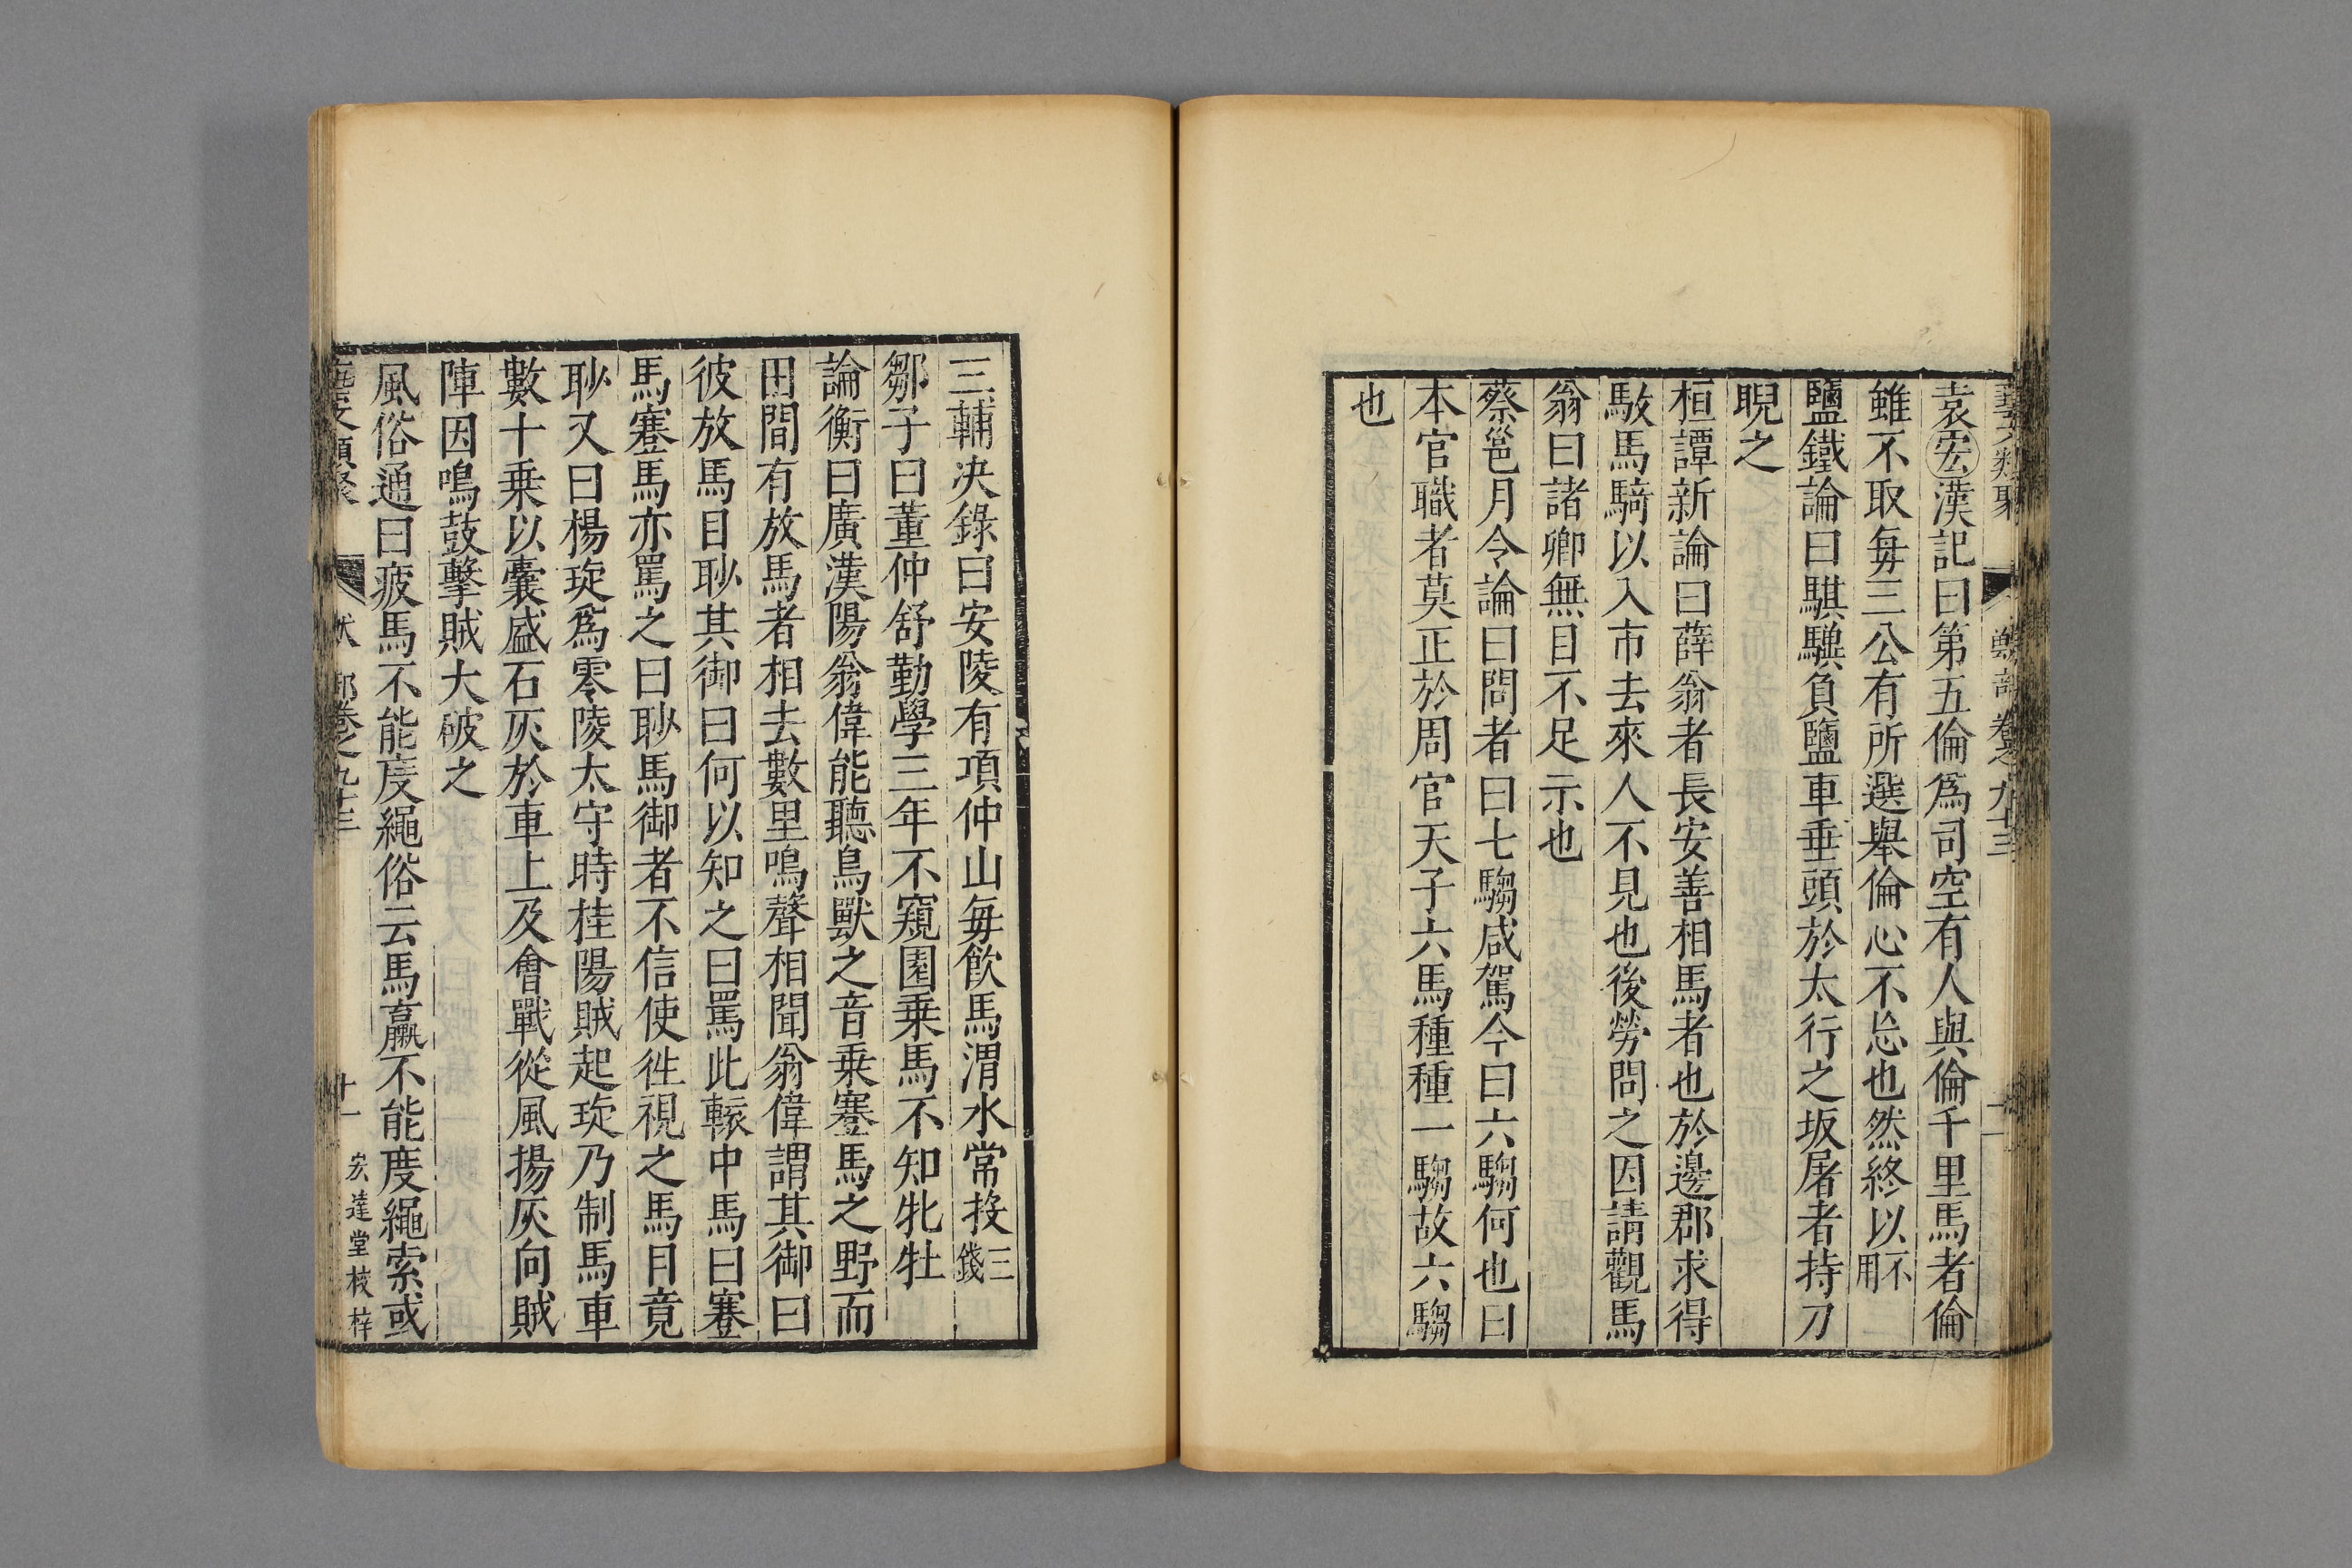 藝文類聚 獸部卷之九十三 十一
袁宏漢記曰第五倫爲司空有人與倫千里馬者倫
雖不取每三公有所選舉倫心不忘也然終以不用
鹽鐵論曰騏驥負鹽車垂頭於太行之坂屠者持刀
睨之
桓譚新論曰薛翁者長安善相馬者也於邊郡求得
駁馬騎以入市去來人不見也後勞問之因請觀馬
翁曰諸卿無目不足示也
蔡邕月令論曰問者曰七騶咸駕今曰六騶何也曰
本官職者莫正於周官天子六馬種種一騶故六騶
也
三輔决錄曰安陵有項仲山每飲馬渭水常投三錢
鄒子曰董仲舒勤學三年不窺園乗馬不知牝牡
論衡曰廣漢陽翁偉能聽鳥獸之音乗蹇馬之野而
田間有放馬者相去數里鳴聲相聞翁偉謂其御曰
彼放馬目眇其御曰何以知之曰罵此轅中馬曰蹇
馬蹇馬亦罵之曰眇馬御者不信使徃視之馬目竟
眇又曰楊琁爲零陵太守時桂陽賊起琁乃制馬車
數十乗以囊盛石灰於車上及會戰從風揚灰向賊
陣因鳴鼓擊賊大破之
風俗通曰疲馬不能度繩俗云馬羸不能度繩索或
藝文類聚 獸部卷之九十三 十一 宏達堂校梓